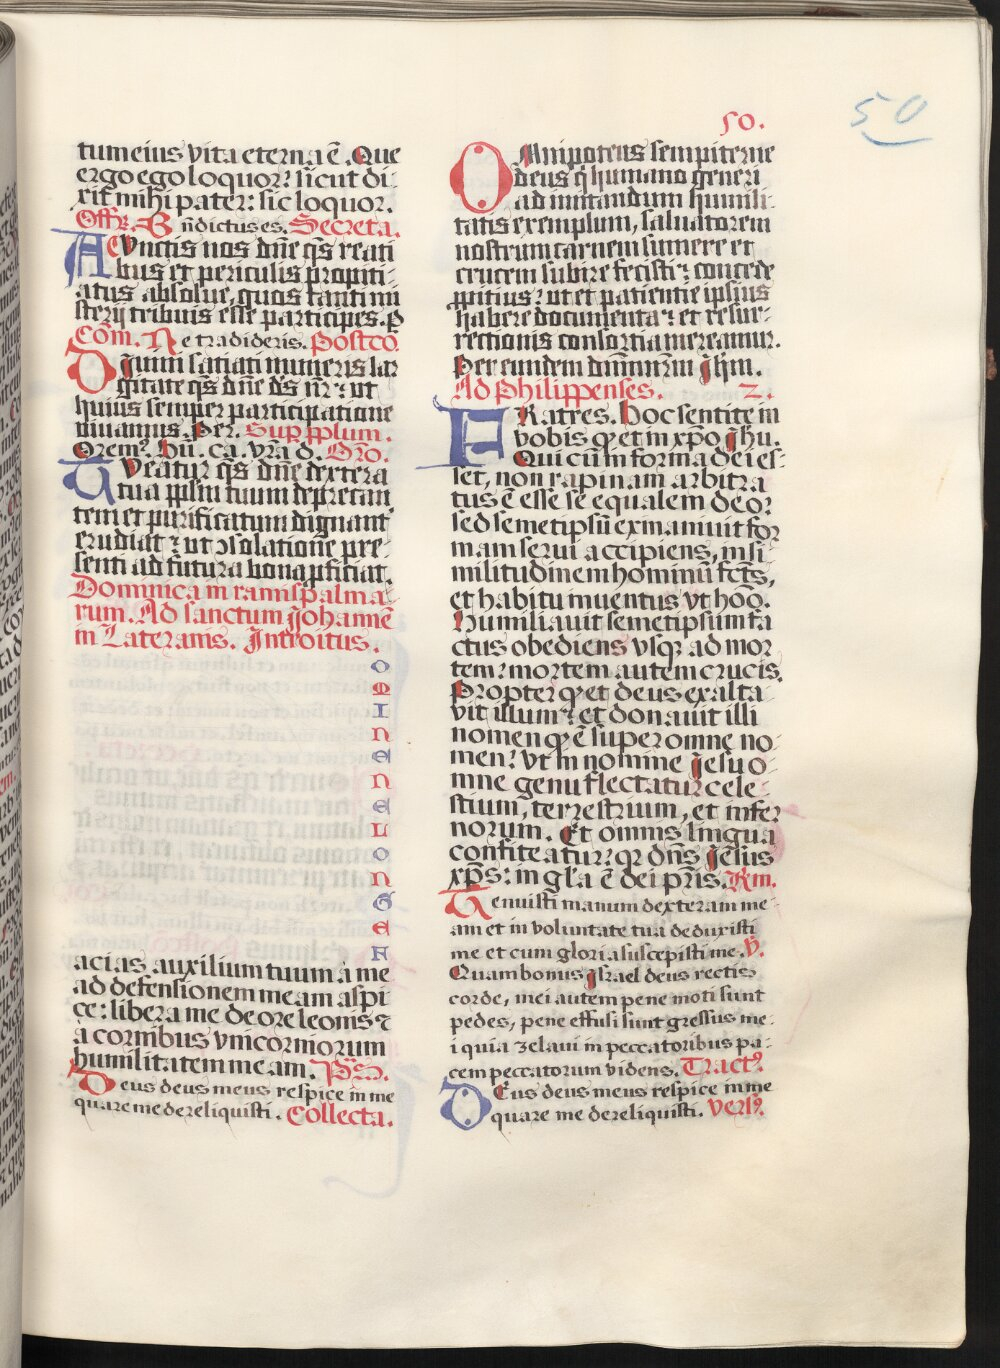 50
50.
tum eius vita eterna ē. Que
ergo ego loquor: sicut di-
xit mihi pater: sic loquor.
Offr. Bn̄dictus es. Secreta.
ACunctis nos dn̄e q̄s reati
bus et periculis propiti-
atus absolue, quos tanti mi
sterij tribuis esse participes. P
Com̄. Ne tradideris. Postco.
DIuini satiati muneris lar
gitate q̄s dn̄e ds̄ nr̄: ut
huius semper participatione
viuamus. Per. Sup ppl̄um.
Orem⁹. hu. ca. vr̄a d. Oro.
TUeatur q̄s dn̄e dextera
tua pplm̄ tuum deprecan
tem et purificatum dignant᷑
erudiat: ut ꝯsolatione pre-
senti ad futura bona ꝓficiat.
Dominica in ramis palma-
rum. Ad sanctum Johannē
in Lateranis. Introitus.
O
M
I
N
E
N
E
L
O
N
G
E
F
acias auxilium tuum a me
ad defensionem meam aspi
ce: libera me de ore leonis ⁊
a cornibus vnicornorum
humilitatem meam. Ps.
Deus deus meus respice in me
quare me dereliquisti. Collecta.
OMnipotens sempiterne
deus q̄ humano generi
ad imitandum humili-
tatis exemplum, saluatorem
nostrum carnem sumere et
crucem subire fecisti: concede
ꝓpitius: ut et patientie ipsius
habere documenta: et resur-
rectionis consortia mereamur.
Per eundem dn̄m nr̄m Jhm.
Ad Philippenses. 2.
FRatres. hoc sentite in
vobis qͥ et in xp̄o Jhu.
Qui cū in forma dei es-
set, non rapinam arbitra
tus ē esse se equalem deo:
sed semetipsū exinaniuit for
mam serui accipiens, in si-
militudinem hominū fct̄s,
et habitu inuentus vt hō.
Humiliauit semetipsum fa
ctus obediens vsq̄ ad mor
tem: mortem autem crucis.
Propter qͥ et deus exalta-
vit illum: et donauit illi
nomen qͥ ē super omne no-
men: vt in nomine Jesu o-
mne genu flectatur cele-
stium, terrestrium, et infer
norum. Et omnis lingua
confiteatur: qꝛ dn̄s Jesus
xp̄s: in gl̄a ē dei pr̄is. Rm.
Tenuisti manum dexteram me-
am et in voluntate tua deduxisti
me et cum gloria suscepisti me. V.
Quam bonus israel deus rectis
corde, mei autem pene moti sunt
pedes, pene effusi sunt gressus me-
i quia zelaui in peccatoribus pa-
cem peccatorum videns. Tract⁹.
DEus deus meus respice in me
quare me dereliquisti. Vers⁹.